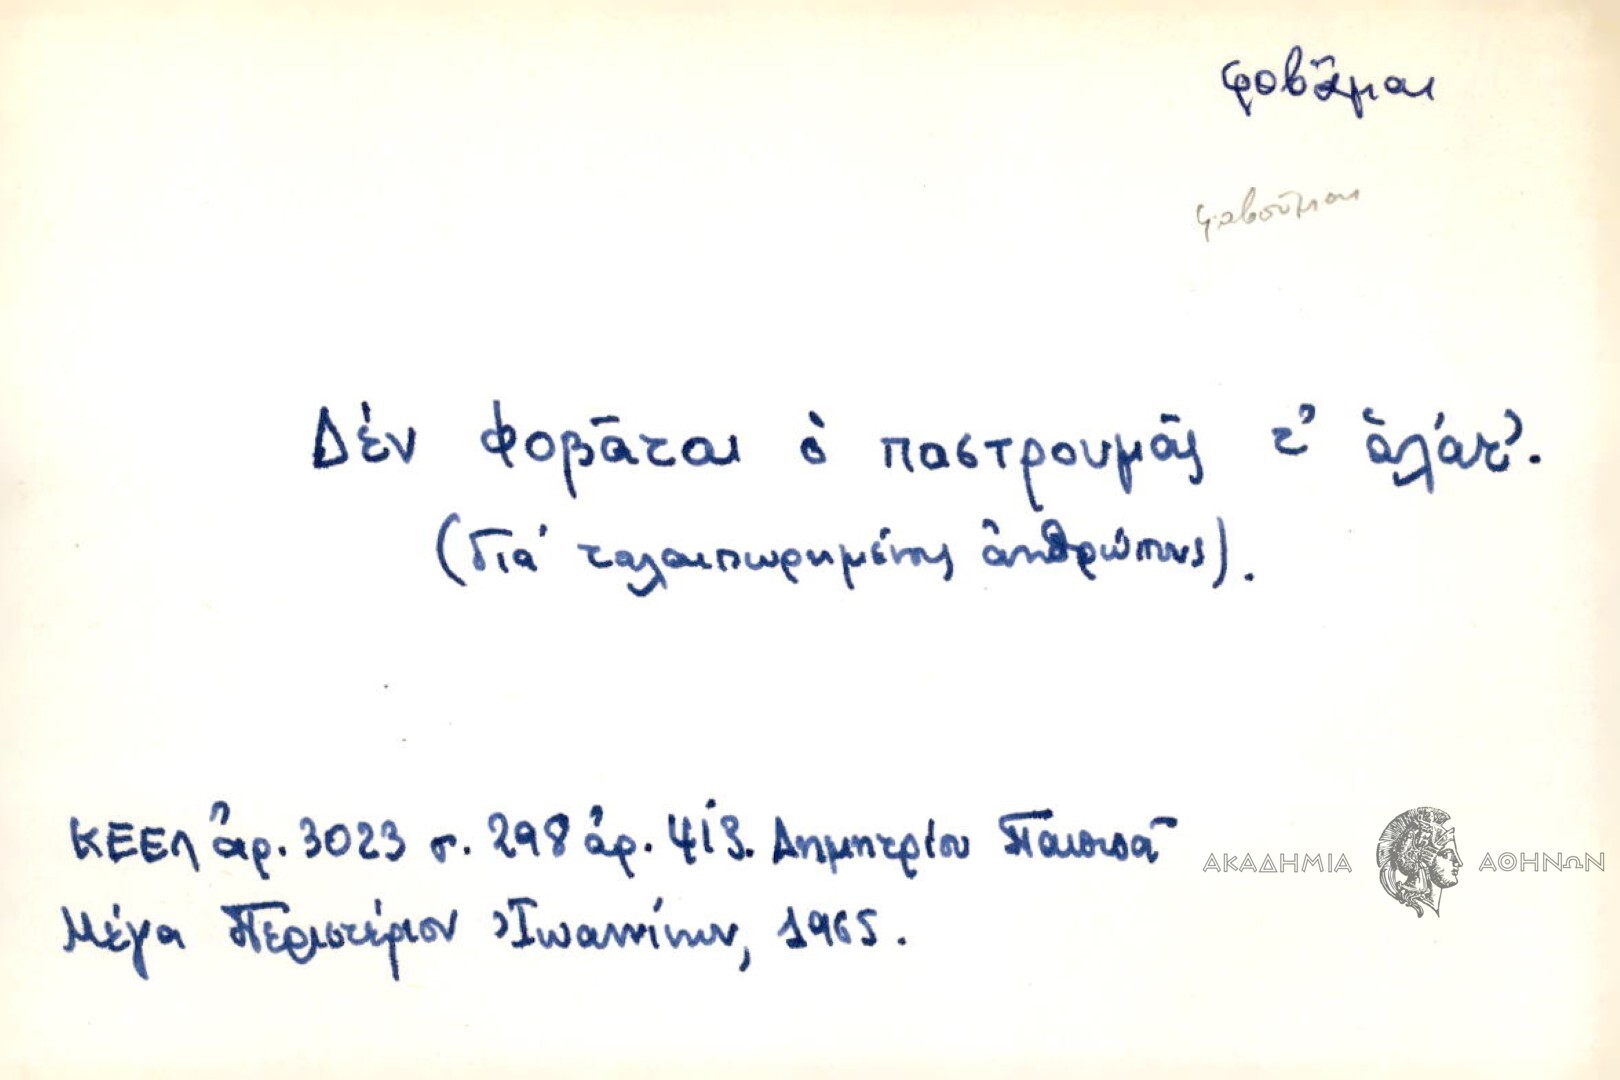 φοβᾶμαι
φοβοῦμαι
Δέν φοβᾶται ὁ παστρουμᾶς τ' ἀλάτ'.
(διά ταλαιπωρημένους ἀνθρώπους).
ΚΕΕΛ ἀρ. 3023 σ. 298 ἀρ. 413. Δημητρίου
ΑΚΑΔΗΜΙΑ ΑΘΗΝΩΝ
Μέγα Περιστέριον Ἰωαννίνων, 1965.